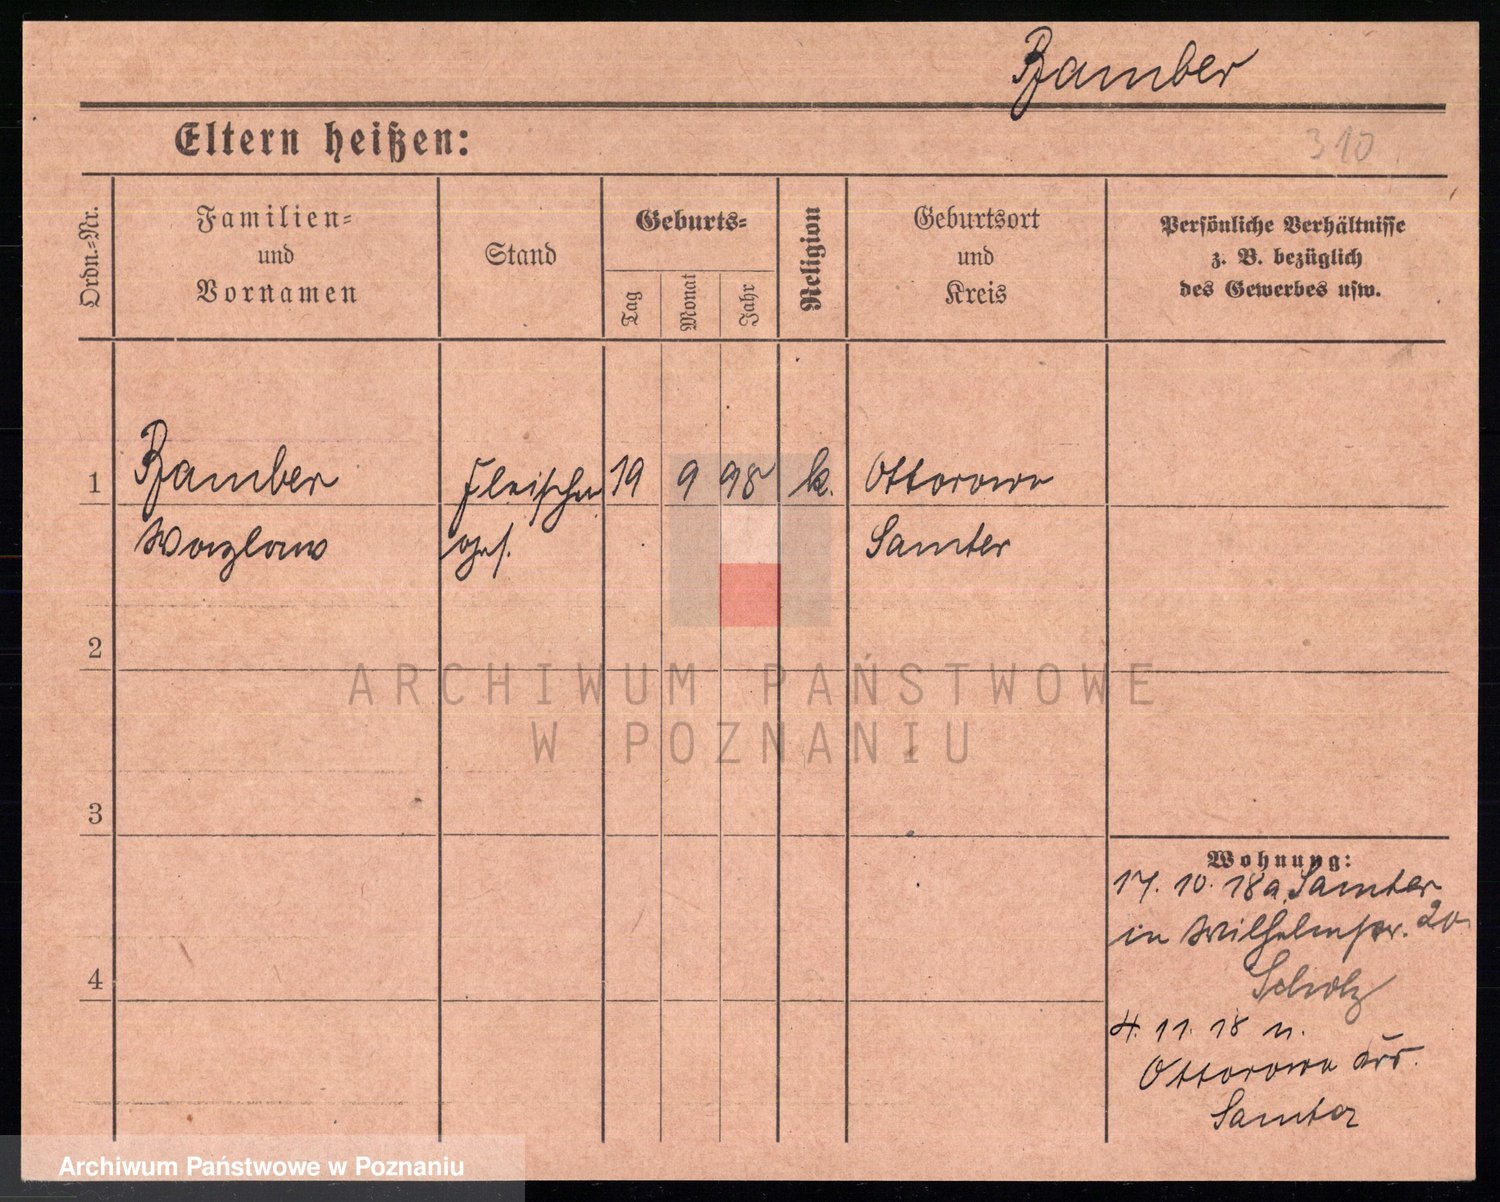 Bamber
Eltern heißen:
310
Ordn.-Nr.
Familien-
und
Vornamen
Stand
Geburts-
Tag
Monat
Jahr
Religion
Geburtsort
und
Kreis
Persönliche Verhältnisse
z. B. bezüglich
des Gewerbes usw.
1 Bamber Fleischer 19 9 98 k. Ottorowo
Wazlaw ges. Samter
2
3
4
Wohnung:
17. 10. 18 a. Samter
in Wilhelmstr. 20
Scholz
4. 11. 18 n.
Ottorowo Krs.
Samter
ARCHIWUM PAŃSTWOWE
W POZNANIU
Archiwum Państwowe w Poznaniu